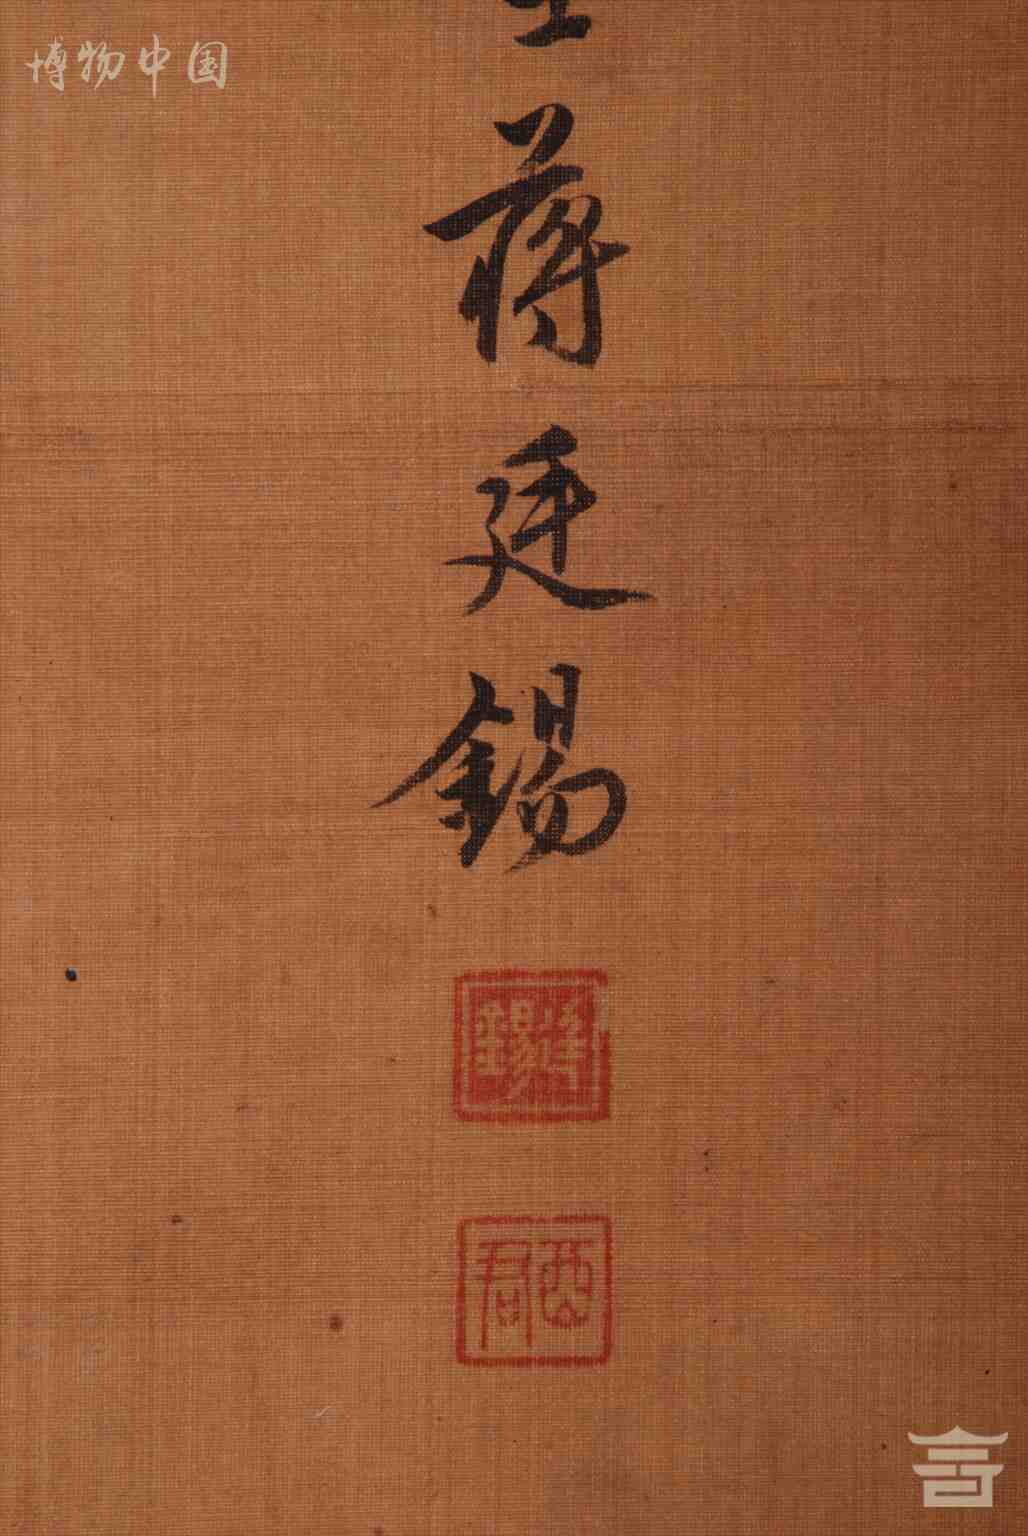 博物中国
蒋廷錫
廷錫
酉君